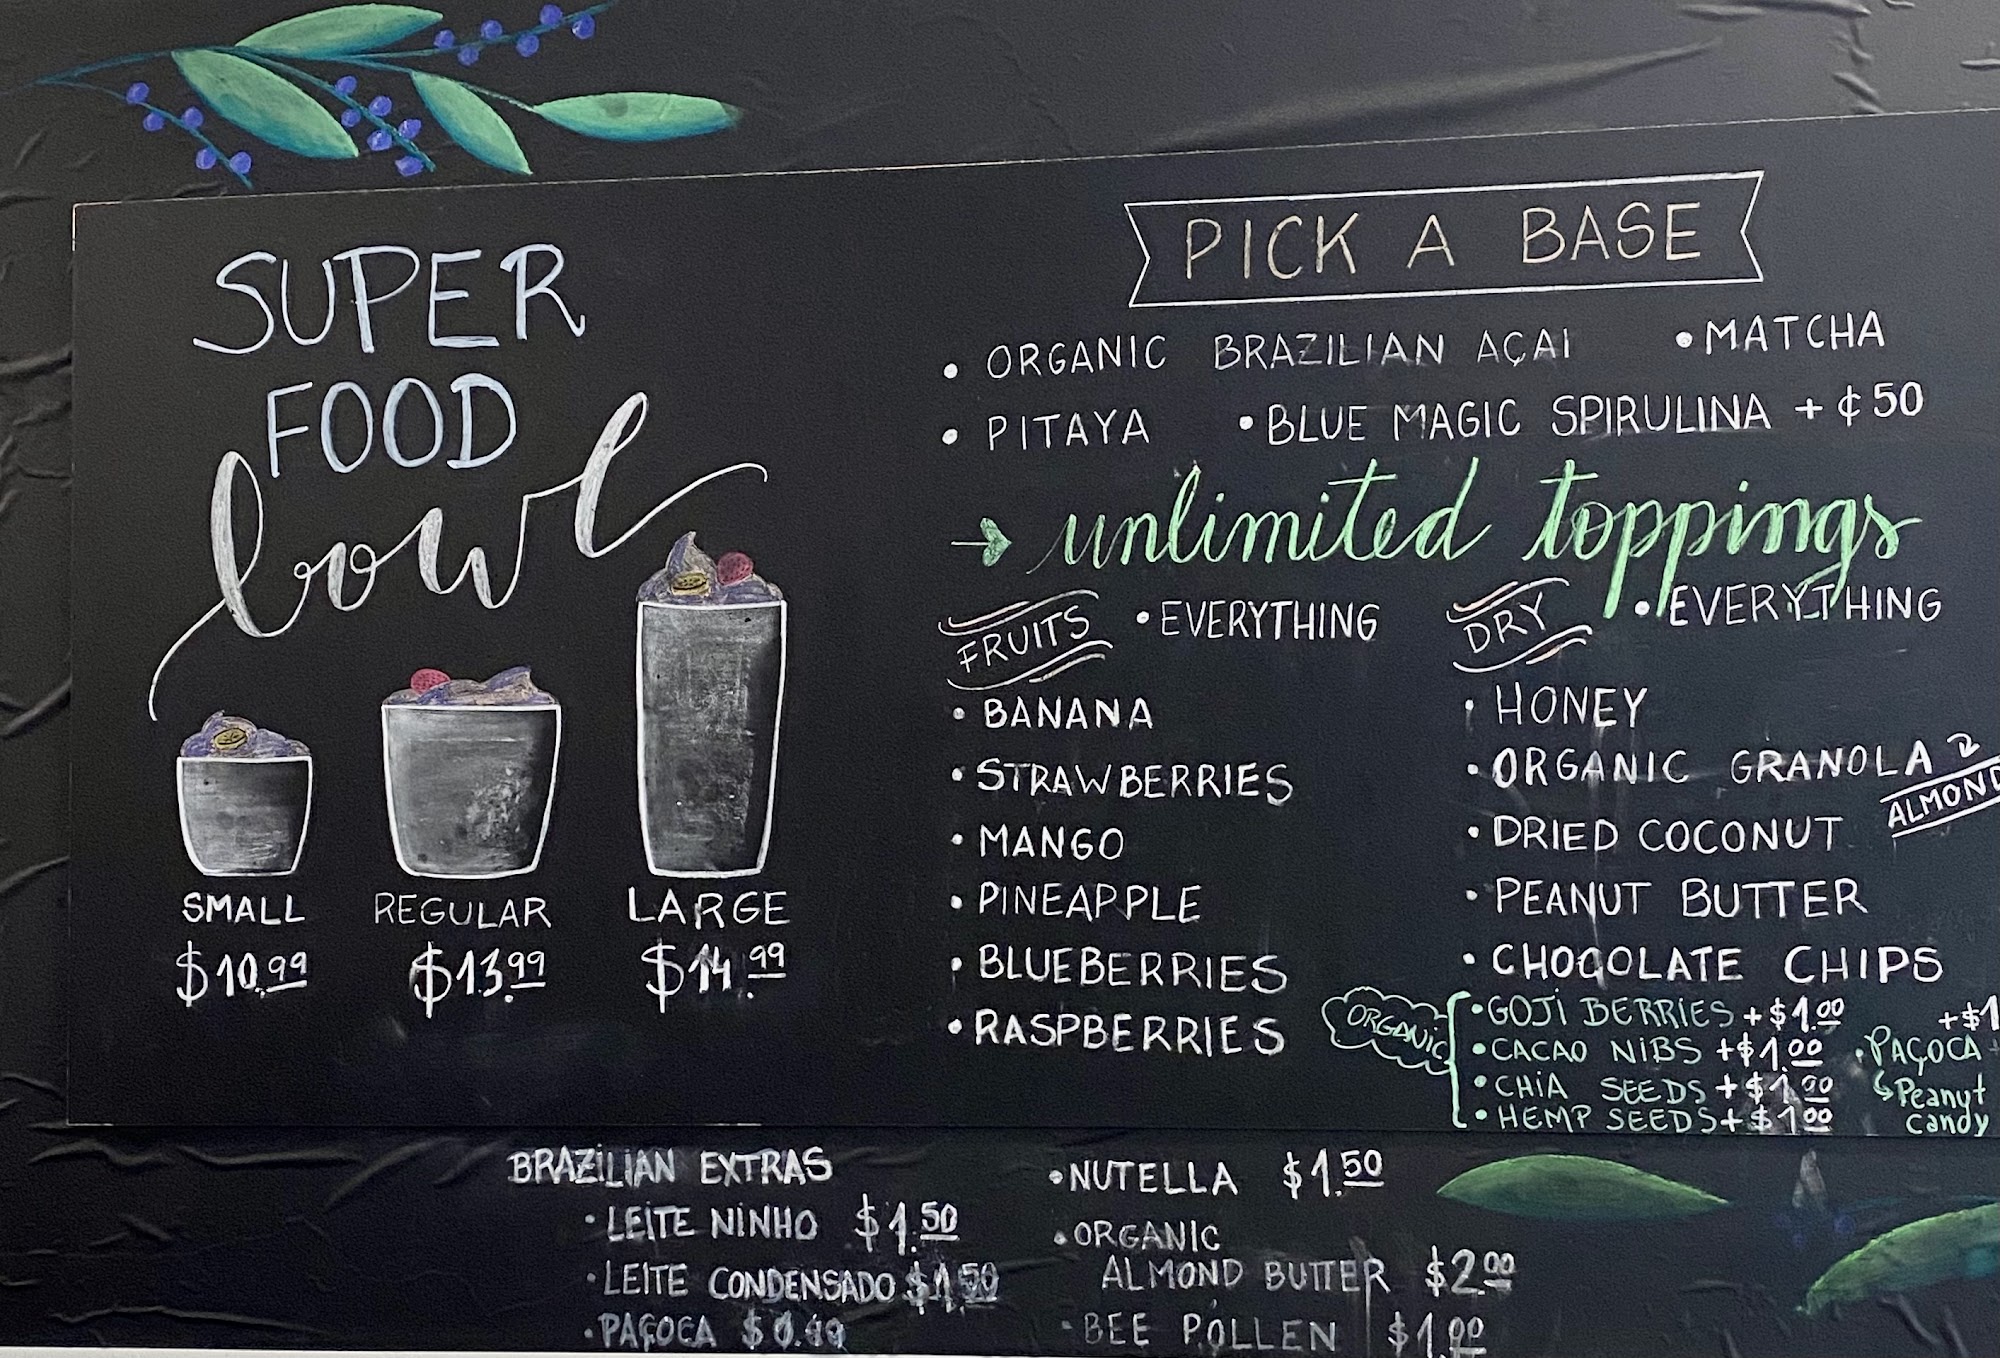 SUPER
FOOD
bowl
SMALL
$10.99
REGULAR
$13.99
LARGE
$14.99
PICK A BASE
• ORGANIC BRAZILIAN AÇAI • MATCHA
• PITAYA • BLUE MAGIC SPIRULINA + ¢50
→ unlimited toppings
FRUITS • EVERYTHING
• BANANA
• STRAWBERRIES
• MANGO
• PINEAPPLE
• BLUEBERRIES
• RASPBERRIES
DRY • EVERYTHING
• HONEY
• ORGANIC GRANOLA
ALMOND
• DRIED COCONUT
• PEANUT BUTTER
• CHOCOLATE CHIPS
ORGANIC
• GOJI BERRIES +$1.00
• CACAO NIBS +$1.00
• CHIA SEEDS +$1.00
• HEMP SEEDS +$1.00
+$1
• PAÇOCA +
Peanut
candy
BRAZILIAN EXTRAS
• LEITE NINHO $1.50
• LEITE CONDENSADO $1.50
• PAÇOCA
• NUTELLA $1.50
• ORGANIC
ALMOND BUTTER $2.00
• BEE POLLEN $1.00